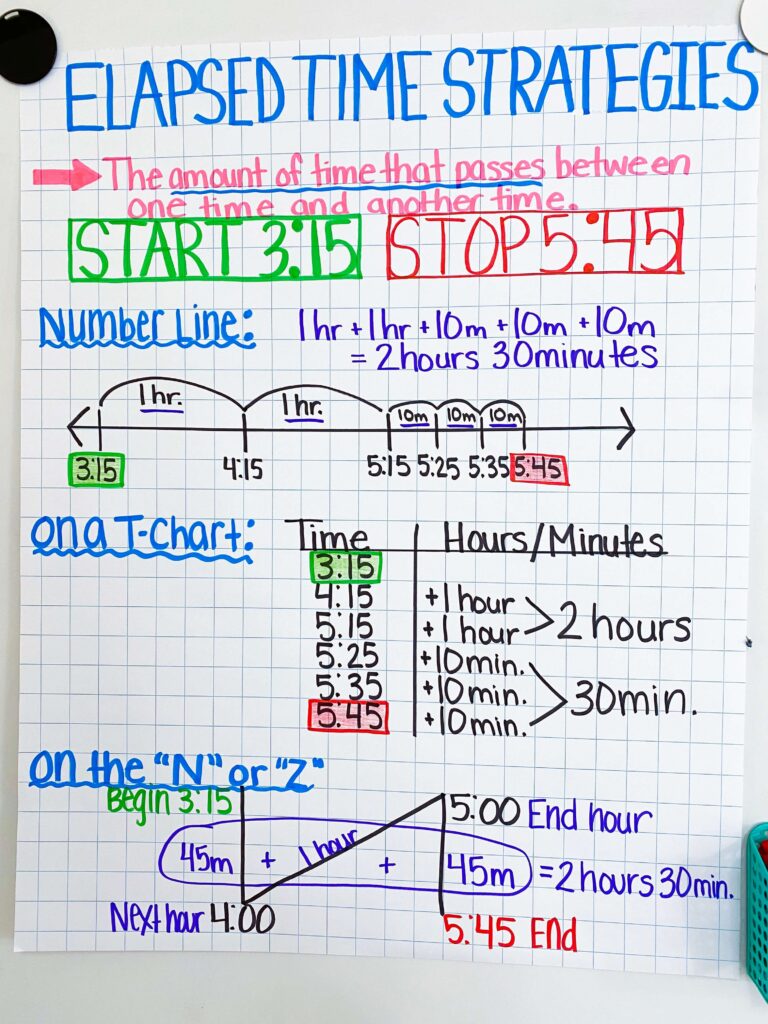 ELAPSED TIME STRATEGIES
The amount of time that passes between
one time and another time.
START 3:15 STOP 5:45
Number Line: 1hr + 1hr + 10m + 10m + 10m
= 2hours 30minutes
1hr. 1hr. 10m 10m 10m
3:15 4:15 5:15 5:25 5:35 5:45
on a T-Chart: Time Hours/Minutes
3:15
4:15 +1 hour
5:15 +1 hour > 2 hours
5:25 +10min.
5:35 +10min. > 30min.
5:45 +10min.
on the "N" or "Z"
Begin 3:15 5:00 End hour
45m + 1 hour + 45m = 2 hours 30min.
Next hour 4:00 5:45 End